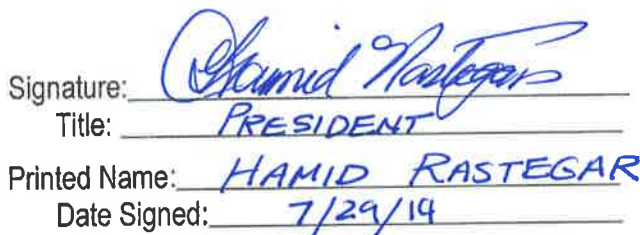 Signature: Hamid Rastegar
Title: PRESIDENT
Printed Name: HAMID RASTEGAR
Date Signed: 7/29/14